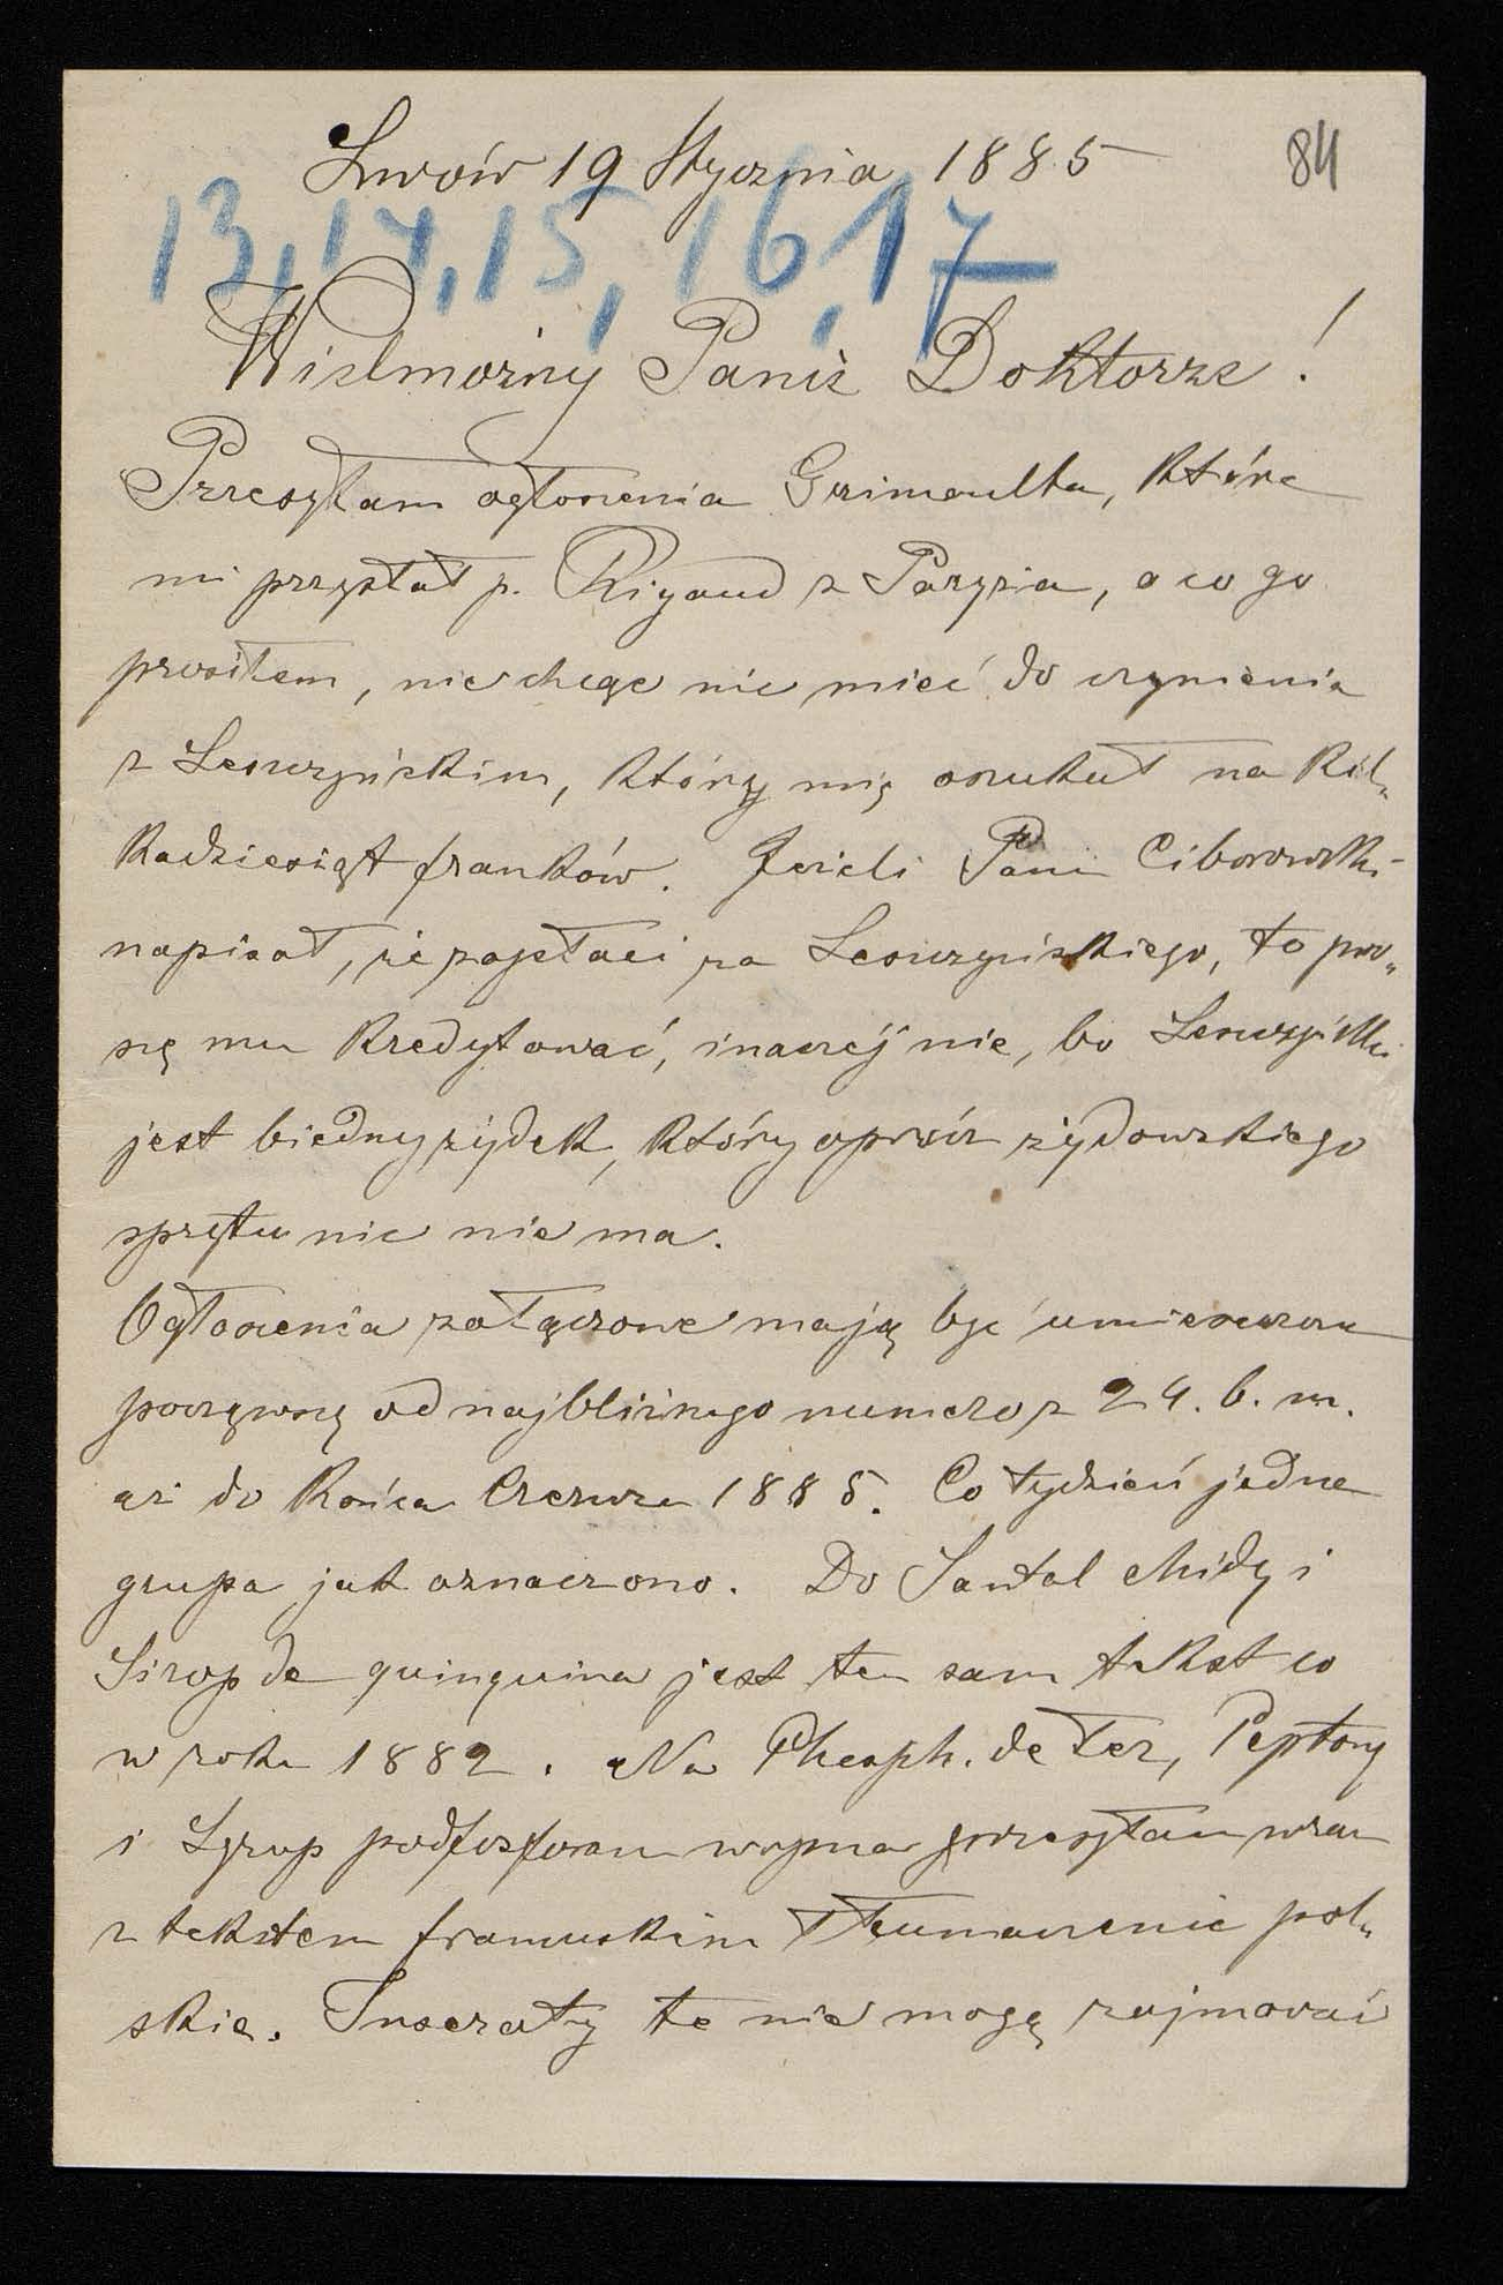 Lwów 19 Stycznia 1885
84
13, 14, 15, 16, 17
Wielmożny Panie Doktorze!
Przesyłam ogłoszenia Grimaulta, które
mi przysłał p. Rigaud z Paryża, o co go
prosiłem, nie chcąc nic mieć do czynienia
z Leszczyńskim, który mię oszukał na kil„
kadziesiąt franków. Jeżeli Pan Ciborowski
napisał, że zapłaci za Leszczyńskiego, to pro„
szę mu kredytować, inaczéj nie, bo Leszczyński
jest biedny żydek, który oprócz żydowskiego
sprytu nic nie ma.
Ogłoszenia załączone mają być umieszczone
począwszy od najbliższego numeru z 24. b. m.
aż do końca Czerwca 1885. Co tydzień jedna
grupa jak oznaczono. Do Santal Midy i
Sirop de quinquina jest ten sam tekst co
w roku 1882. Na Phosph. de Fer, Peptony
i Syrop podfosforanu wapna przesyłam wraz
z tekstem francuskim tłumaczenie pol„
skie. Inseraty te nie mogą zajmować